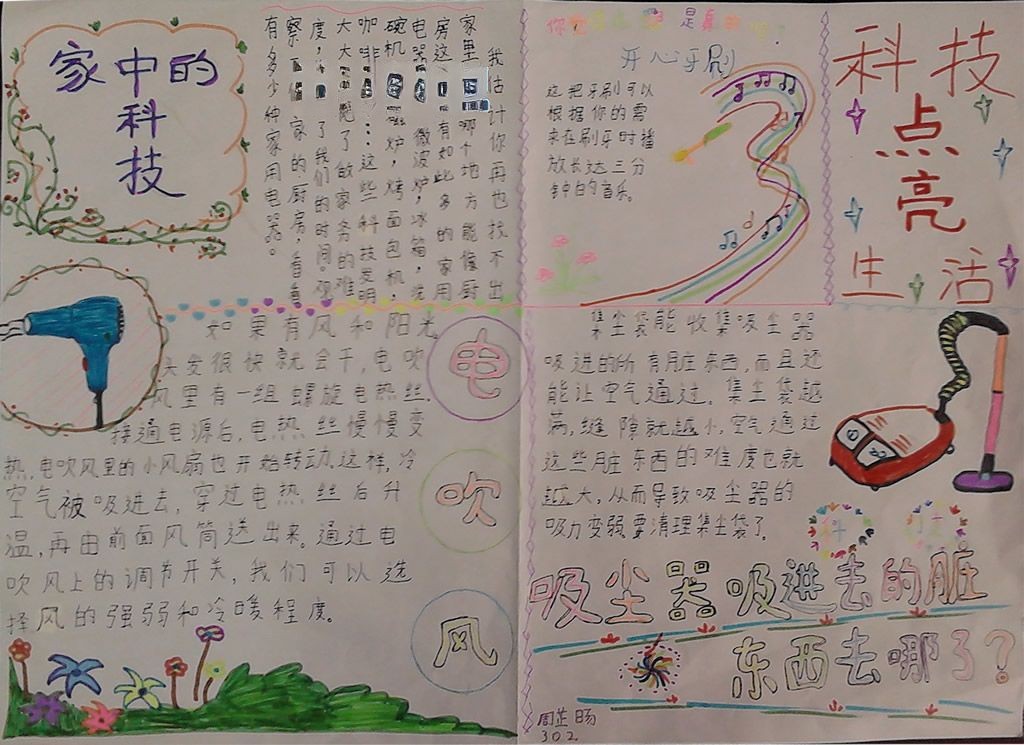 家中的
科
技
我估计你再也找不出
家里哪个地方能像厨
房这有如此多的家用
电器微波炉，冰箱，洗
碗机炉，烤面包机，
咖啡……这些科技发明
大大了做家务的难
度，了我们的时间。
察家的厨房，看看
有多少种家用电器。
是真
开心牙刷
这把牙刷可以
根据你的需
求在刷牙时播
放长达三分
钟的音乐。
科技
点
亮
生活
如果有风和阳光
头发很快就会干，电吹
风里有一组螺旋电热丝。
接通电源后，电热丝慢慢变
热，电吹风里的小风扇也开始转动。这样，冷
空气被吸进去，穿过电热丝后升
温，再由前面风筒送出来。通过电
吹风上的调节开关，我们可以选
择风的强弱和冷暖程度。
电
吹
风
集尘袋能收集吸尘器
吸进的所有脏东西，而且还
能让空气通过。集尘袋越
满，缝隙就越小，空气通过
这些脏东西的难度也就
越大，从而导致吸尘器的
吸力变弱要清理集尘袋了。
科技
吸尘器吸进去的脏
东西去哪了？
周芷旸
302